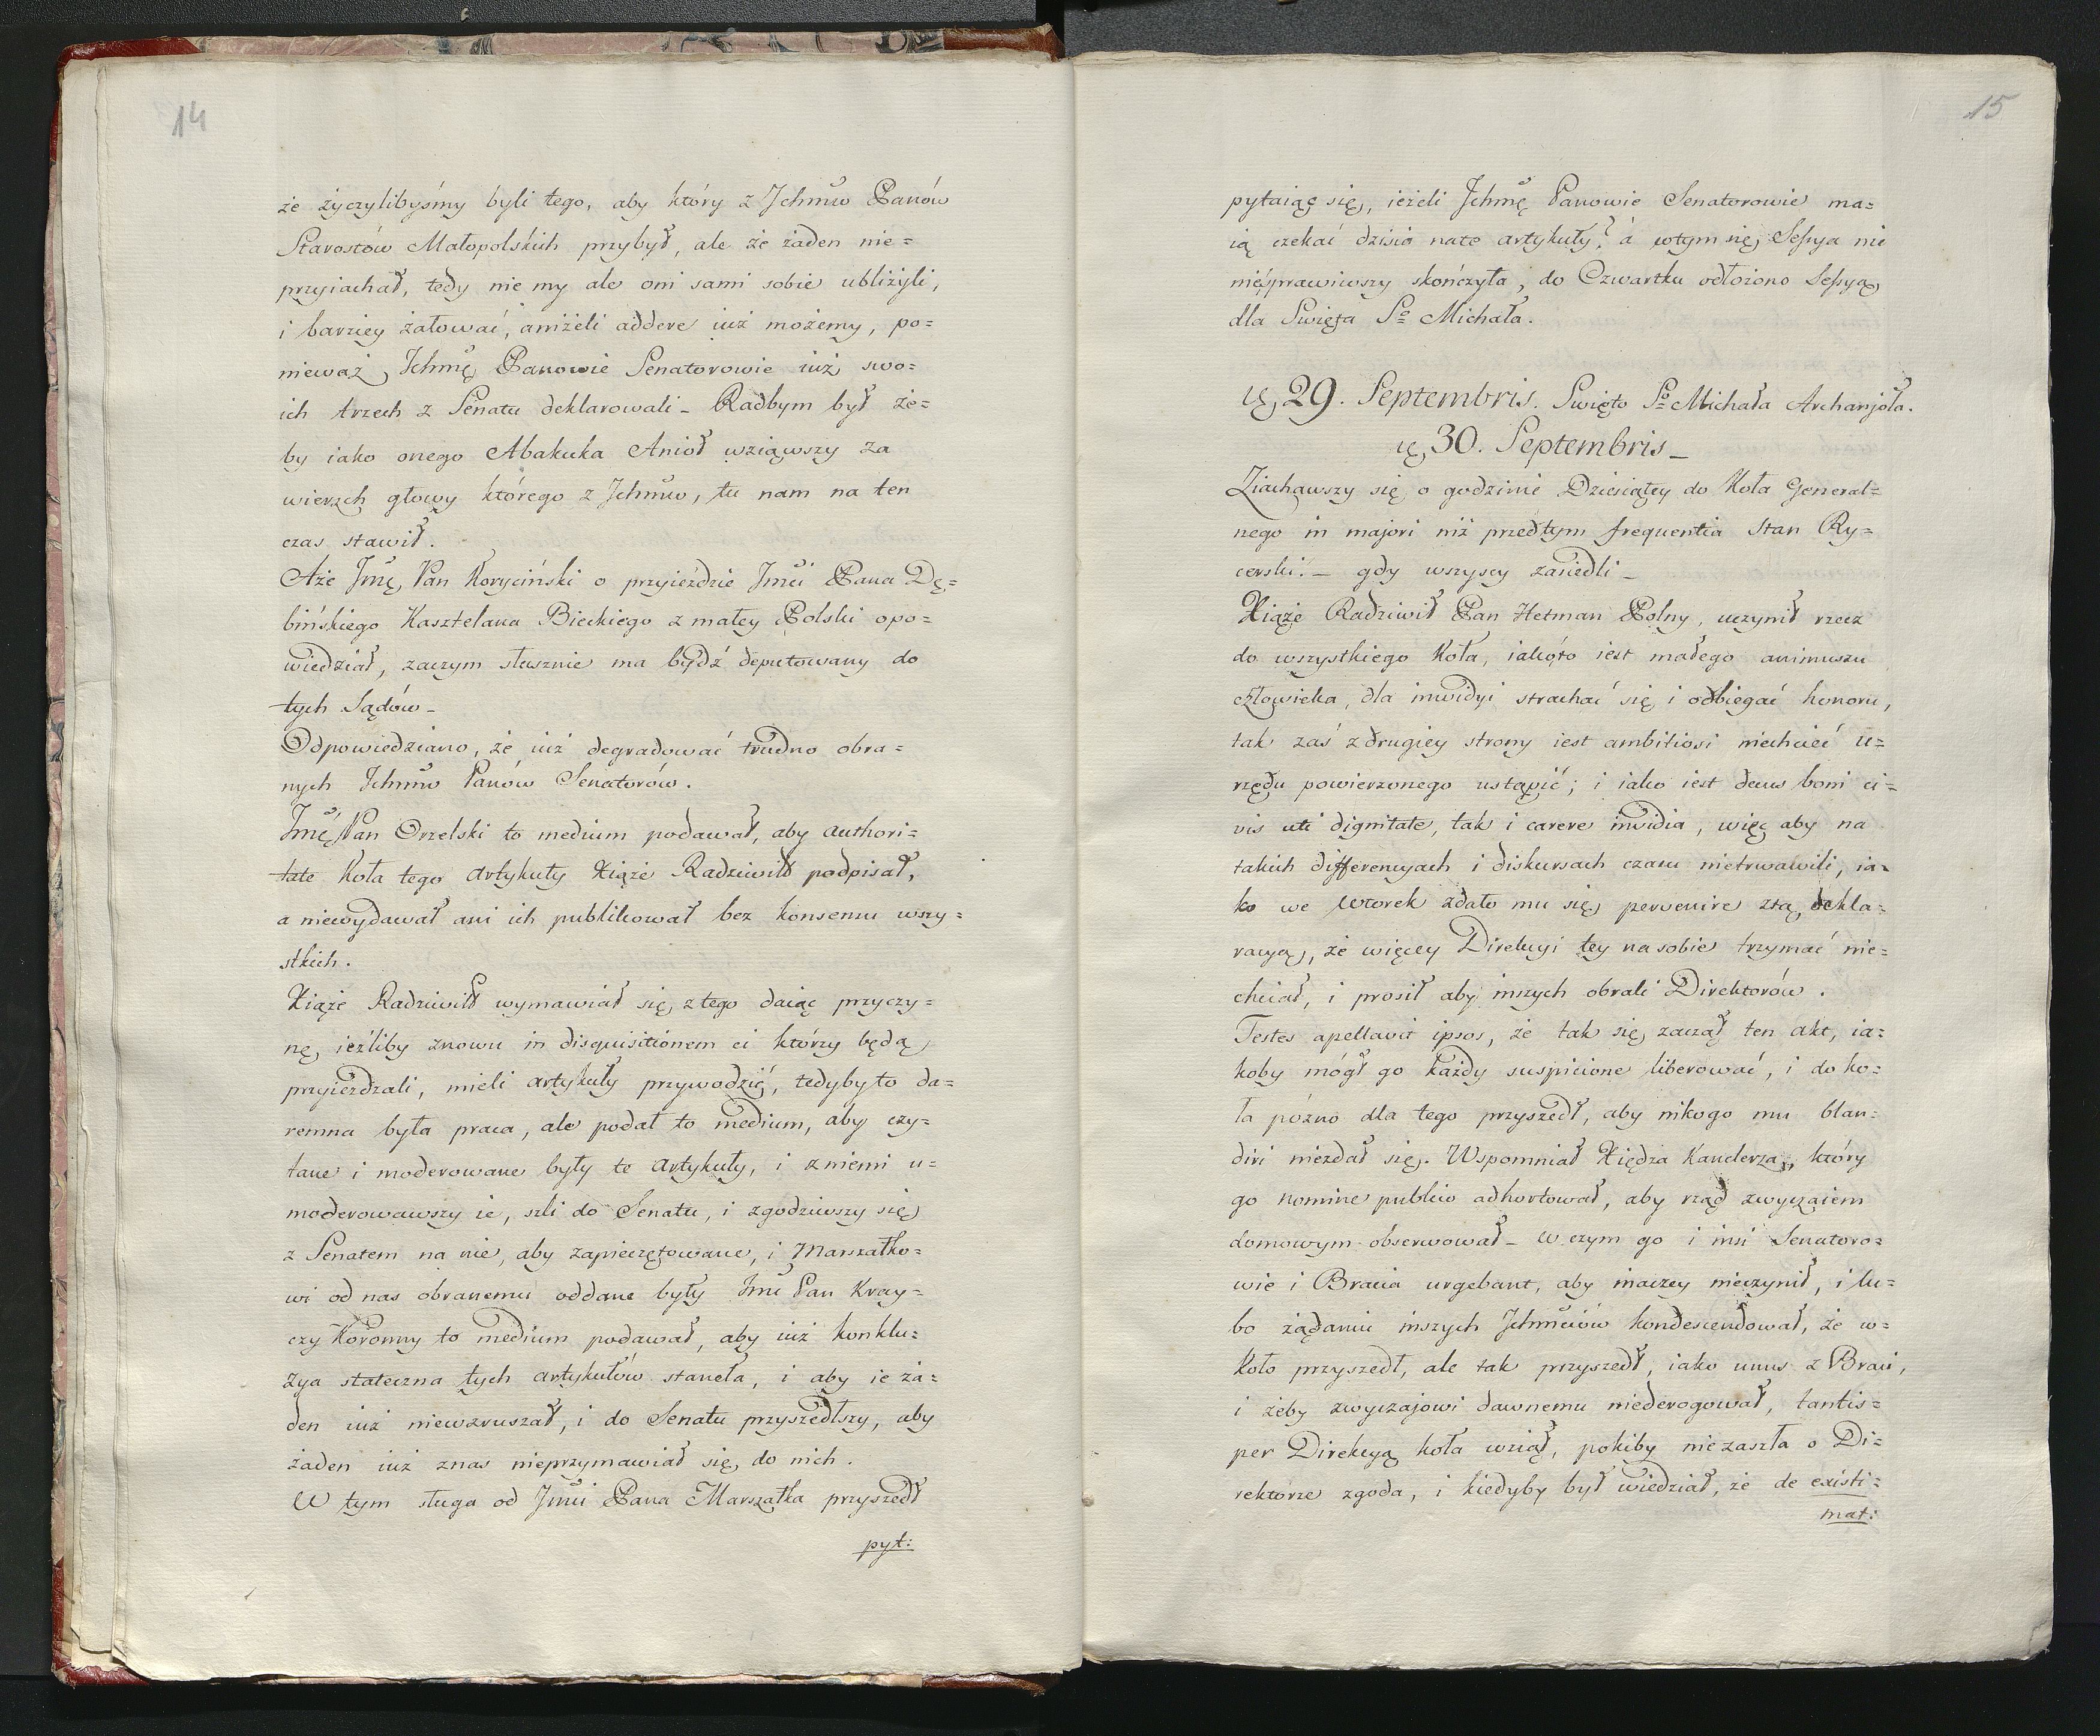 14
że życzylibyśmy byli tego, aby który z Jchmw Panów
Starostów Małopolskich przybył, ale że żaden nie=
przyiachał, tedy nie my ale oni sami sobie ubliżyli,
i barziey żałować, aniżeli addere iuż możemy, po=
nieważ Jchmę Panowie Senatorowie iuż swo=
ich trzech z Senatu deklarowali_ Radbym był że=
by iako onego Abakuka Anioł wziąwszy za
wierzch głowy którego z Jchmw, tu nam na ten
czas stawił.
Aże Jmę Pan Koryciński o przyieździe Jmci Pana Dę=
bińskiego Kasztelana Bieckiego z małey Polski opo=
wiedział, zaczym słusznie ma bydź deputowany do
tych Sądów_
Odpowiedziano, że iuż degradować trudno obra=
nych Jchmw Panów Senatorów.
Jmę Pan Orzelski to medium podawał, aby authori=
tate Koła tego artykuły Xiąże Radziwiłł podpisał,
a niewydawał ani ich publikował bez konsensu wszy=
stkich.
Xiąże Radziwiłł wymawiał się z tego daiąc przyczy=
nę, ieźliby znowu in disquisitionem ci którzy będą
przyieżdzali, mieli artykuły przywodzić, tedyby to da=
remna była praca, ale podał to medium, aby czy=
tane i moderowane były te artykuły, i z niemi u=
moderowawszy ie, szli do Senatu, i zgodziwszy się
z Senatem na nie, aby zapieczętowane, i Marszałko=
wi od nas obranemu oddane były Jmć Pan Kray=
czy Koronny to medium podawał, aby iuż konklu=
zya stateczna tych artykułów stanęła, i aby ie ża=
den iuż niewzruszał, i do Senatu przyszedłszy, aby
żaden iuż znas nieprzymawiał się do nich.
W tym sługa od Jmci Pana Marszałka przyszedł
pyt:
15
pytaiąc się, ieżeli Jchmę Panowie Senatorowie ma=
ią czekać dzisia nate artykuły? á wtym się Sessya nic
niesprawiwszy skończyła, do Czwartku odłożono Sessyą
dla Swięta So Michała.
29. Septembris. Swięto So Michała Archanjoła.
30. Septembris_
Ziachawszy się o godzinie Dziesiątey do Koła General=
nego in majori niż przedtym frequentia Stan Ry=
cerski._ gdy wszyscy zasiedli_
Xiąże Radziwił Pan Hetman Polny, uczynił rzecz
do wszystkiego Koła, iako to iest małego animuszu
człowieka, dla inwidyi strachać się i odbiegać honoru,
tak zaś z drugiey strony iest ambitiosi niechcieć u=
rzędu powierzonego ustąpić; i iako iest decus boni ci=
vis uti dignitate, tak i carere invidia, więc aby na
takich differencyach i diskursach czasu nietrwawili, ia=
ko we wtorek zdało mu się pervenire ztą dekla=
racyą, że więcey Direkcyi tey na sobie trzymać nie=
chciał, i prosił aby inszych obrali Direktorów.
Testes apellavit ipsos, że tak się zaczął ten akt, ia=
koby mógł go każdy suspicione liberować, i do ko=
ła pózno dla tego przyszedł, aby nikogo mu blan=
diri niezdał się. Wspomniał Xiędza Kanclerza, który
go nomine publico adhortował, aby rząd zwyczaiem
domowym obserwował_ w czym go i insi Senatoro=
wie i Bracia urgebant, aby inaczey nieczynił, i lu=
bo żądaniu inszych Jchmciów kondescendował, że w=
koło przyszedł, ale tak przyszedł, iako unus z Braci,
i żeby zwyczajowi dawnemu niederogował, tantis=
per Direkcyą koła wziął, pokiby nie zaszła o Di=
rektorze zgoda, i kiedyby był wiedział, że de existi=
mat: